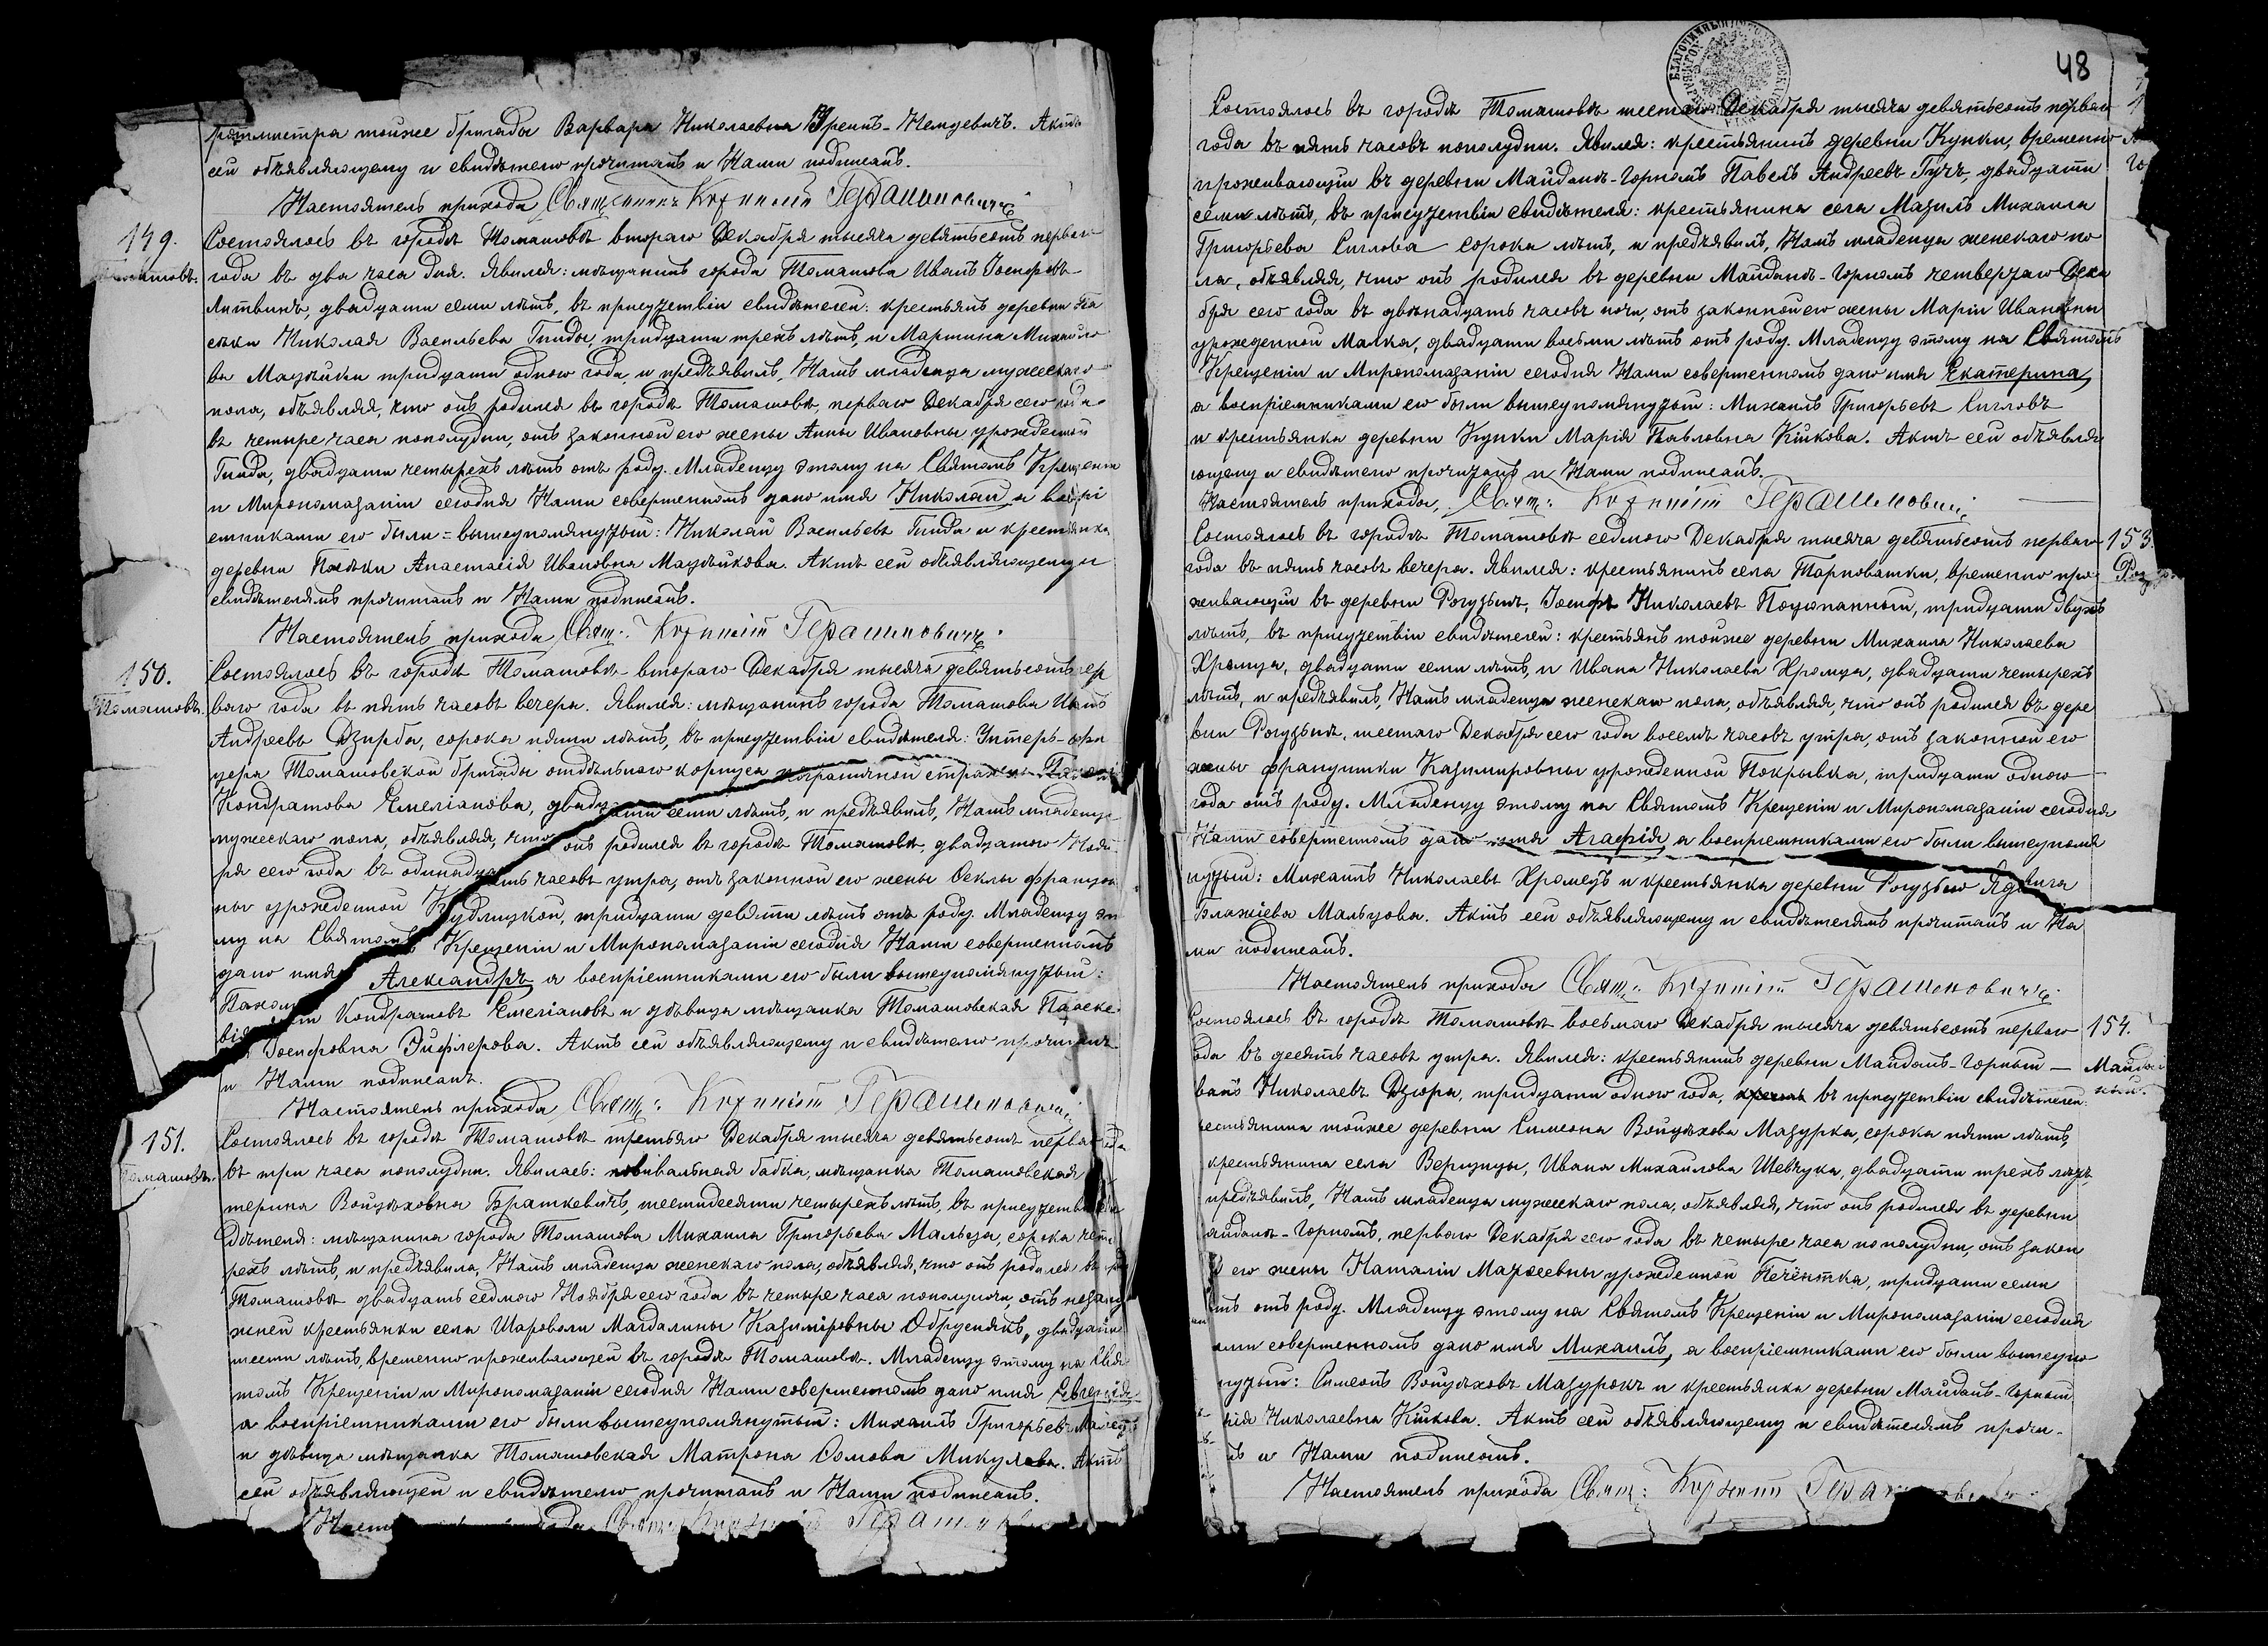 ротмистра тойже бригады Варвара Николаевна Немцевичъ. Актъ
сей объявляющему и свидѣтелю прочитанъ и Нами подписанъ.
Настоятель прихода Священникъ Герашиновичъ
149.
Томашовъ.
Состоялось въ городѣ Томашовѣ втораго Декабря тысяча девятьсотъ перваго
года въ два часа дня. Явился: мѣщанинъ города Томашова Иванъ Іосифовъ
Литвинъ, двадцати семи лѣтъ, въ присутствіи свидѣтелей: крестьянъ деревни Па
сѣки Николая Васильева Гинды, тридцати трехъ лѣтъ, и Мартина Михайло
ва Мацѣйки тридцати одного года, и предъявилъ, Намъ младенца мужескаго
пола, объявляя, что онъ родился въ городѣ Томашовѣ, перваго Декабря сего года
въ четыре часа пополудни, отъ законной его жены Анны Ивановны урожденной
Гинда, двадцати четырехъ лѣтъ отъ роду. Младенцу этому на Святомъ Крещеніи
и Миропомазаніи сегодня Нами совершенномъ дано имя Николай, а воспрі
емниками его были = вышеупомянутый: Николай Васильевъ Гинда и крестьянка
деревни Пасѣки Анастасія Ивановна Мацѣйкова. Актъ сей объявляющему и
свидѣтелямъ прочитанъ и Нами подписанъ.
Настоятель прихода Свящ: Герашиновичъ
150.
Томашовъ.
Состоялось въ городѣ Томашовѣ втораго Декабря тысяча девятьсотъ пер
ваго года въ пять часовъ вечера. Явился: мѣщанинъ города Томашова Иванъ
Андреевъ Дзирба, сорока пяти лѣтъ, въ присутствіи свидѣтеля: Унтеръ-офи
цера Томашовской бригады отдѣльнаго корпуса пограничной стражи
Кондратова Емеліанова, двадцати семи лѣтъ, и предъявилъ, Намъ младенца
мужескаго пола, объявляя, что онъ родился въ городѣ Томашовѣ, двадцатого Нояб
ря сего года въ одинадцать часовъ утра, отъ законной его жены Ѳеклы Францов
ны урожденной Кудлицкой, тридцати девяти лѣтъ отъ роду. Младенцу это
му на Святомъ Крещеніи и Миропомазаніи сегодня Нами совершенномъ
дано имя Александръ, а воспріемниками его были вышеупомянутый:
Кондратовъ Емеліановъ и дѣвица мѣщанка Томашовская Параске
вія Іосифовна Зифлерова. Актъ сей объявляющему и свидѣтелю прочитанъ
и Нами подписанъ.
Настоятель прихода Свящ: Герашиновичъ
151.
Томашовъ.
Состоялось въ городѣ Томашовѣ третьяго Декабря тысяча девятьсотъ перваго года
въ три часа пополудни. Явилась: повивальная бабка, мѣщанка Томашовская
терина Войцѣховна Браткевичъ, шестидесяти четырехъ лѣтъ, въ присутствіи сви
дѣтеля: мѣщанина города Томашова Михаила Григорьева Мальца, сорока четы
рехъ лѣтъ, и предъявила, Намъ младенца женскаго пола, объявляя, что онъ родился въ
Томашовѣ двадцать седмого Ноября сего года въ четыре часа пополуночи, отъ незаму
жней крестьянки села Шароволи Магдалины Казиміровны Обрусьнякъ, двадцати
шести лѣтъ, временно проживающей въ городѣ Томашовѣ. Младенцу этому на Свя
томъ Крещеніи и Миропомазаніи сегодня Нами совершенномъ дано имя Евгенія,
а воспріемниками его были вышеупомянутый: Михаилъ Григорьевъ Малецъ
и дѣвица мѣщанка Томашовская Матрона Ѳомова Микулова. Актъ
сей объявляющей и свидѣтелю прочитанъ и Нами подписанъ.
48
Состоялось въ городѣ Томашовѣ шестаго Декабря тысяча девятьсотъ перваго
года въ пять часовъ пополудни. Явился: крестьянинъ деревни Кунки, временно
проживающій въ деревни Майданѣ-Горномъ Павелъ Андреевъ Гучъ, двадцати
семи лѣтъ, въ присутствіи свидѣтеля: крестьянина села Мазилъ Михаила
Григорьева Сиглова сорока лѣтъ, и предъявилъ, Намъ младенца женскаго по
ла, объявляя, что онъ родился въ деревни Майданѣ-Горномъ четвертаго Дека
бря сего года въ двѣнадцать часовъ ночи, отъ законной его жены Маріи Ивановны
урожденной Малка, двадцати восьми лѣтъ отъ роду. Младенцу этому на Святомъ
Крещеніи и Миропомазаніи сегодня Нами совершенномъ дано имя Екатерина,
а воспріемниками его были вышеупомянутый: Михаилъ Григорьевъ Сигловъ
и крестьянка деревни Кунки Марія Павловна Кійкова. Актъ сей объявля
ющему и свидѣтелю прочитанъ и Нами подписанъ.
Настоятель прихода, Свящ: Герашиновичъ
153.
Состоялось въ городѣ Томашовѣ седмого Декабря тысяча девятьсотъ перваго
года въ пять часовъ вечера. Явился: крестьянинъ села Тарноватки, временно про
живающій въ деревни Рогузьнѣ, Іосифъ Николаевъ Поцюпанный, тридцати двухъ
лѣтъ, въ присутствіи свидѣтелей: крестьянъ тойже деревни Михаила Николаева
Хромца, двадцати семи лѣтъ, и Ивана Николаева Хромца, двадцати четырехъ
лѣтъ, и предъявилъ, Намъ младенца женскаго пола, объявляя, что онъ родился въ дере
вни Рогузьнѣ, шестаго Декабря сего года восемъ часовъ утра, отъ законной его
жены Францишки Казимировны урожденной Покрывка, тридцати одного
года отъ роду. Младенцу этому на Святомъ Крещеніи и Миропомазаніи сегодня
Нами совершенномъ дано имя Агафія, а воспріемниками его были вышеупомя
нутый: Михаилъ Николаевъ Хромецъ и крестьянка деревни Рогузьно Ядвига
Блажіева Мальцова. Актъ сей объявляющему и свидѣтелямъ прочитанъ и На
ми подписанъ.
Настоятель прихода Свящ: Герашиновичъ
154.
Состоялось въ городѣ Томашовѣ восьмаго Декабря тысяча девятьсотъ перваго
года въ десять часовъ утра. Явился: крестьянинъ деревни Майданъ-Горный
Иванъ Николаевъ Дзюра, тридцати одного года, въ присутствіи свидѣтелей:
крестьянина тойже деревни Симеона Войцѣхова Мазурка, сорока пяти лѣтъ,
крестьянина села Вершицы, Ивана Михайлова Шевчука, двадцати трехъ лѣтъ,
предъявилъ, Намъ младенца мужескаго пола, объявляя, что онъ родился въ деревни
Майданѣ-Горномъ, перваго Декабря сего года въ четыре часа пополудни, отъ закон
ной его жены Наталіи Матѳеевны урожденной Печёнтка, тридцати семи
лѣтъ отъ роду. Младенцу этому на Святомъ Крещеніи и Миропомазаніи сегодня
Нами совершенномъ дано имя Михаилъ, а воспріемниками его были вышеупо
нутый: Симеонъ Войцѣховъ Мазурокъ и крестьянка деревни Майданъ-Горный
Николаевна Кійкова. Актъ сей объявляющему и свидѣтелямъ прочи-
танъ и Нами подписанъ.
Настоятель прихода Свящ: